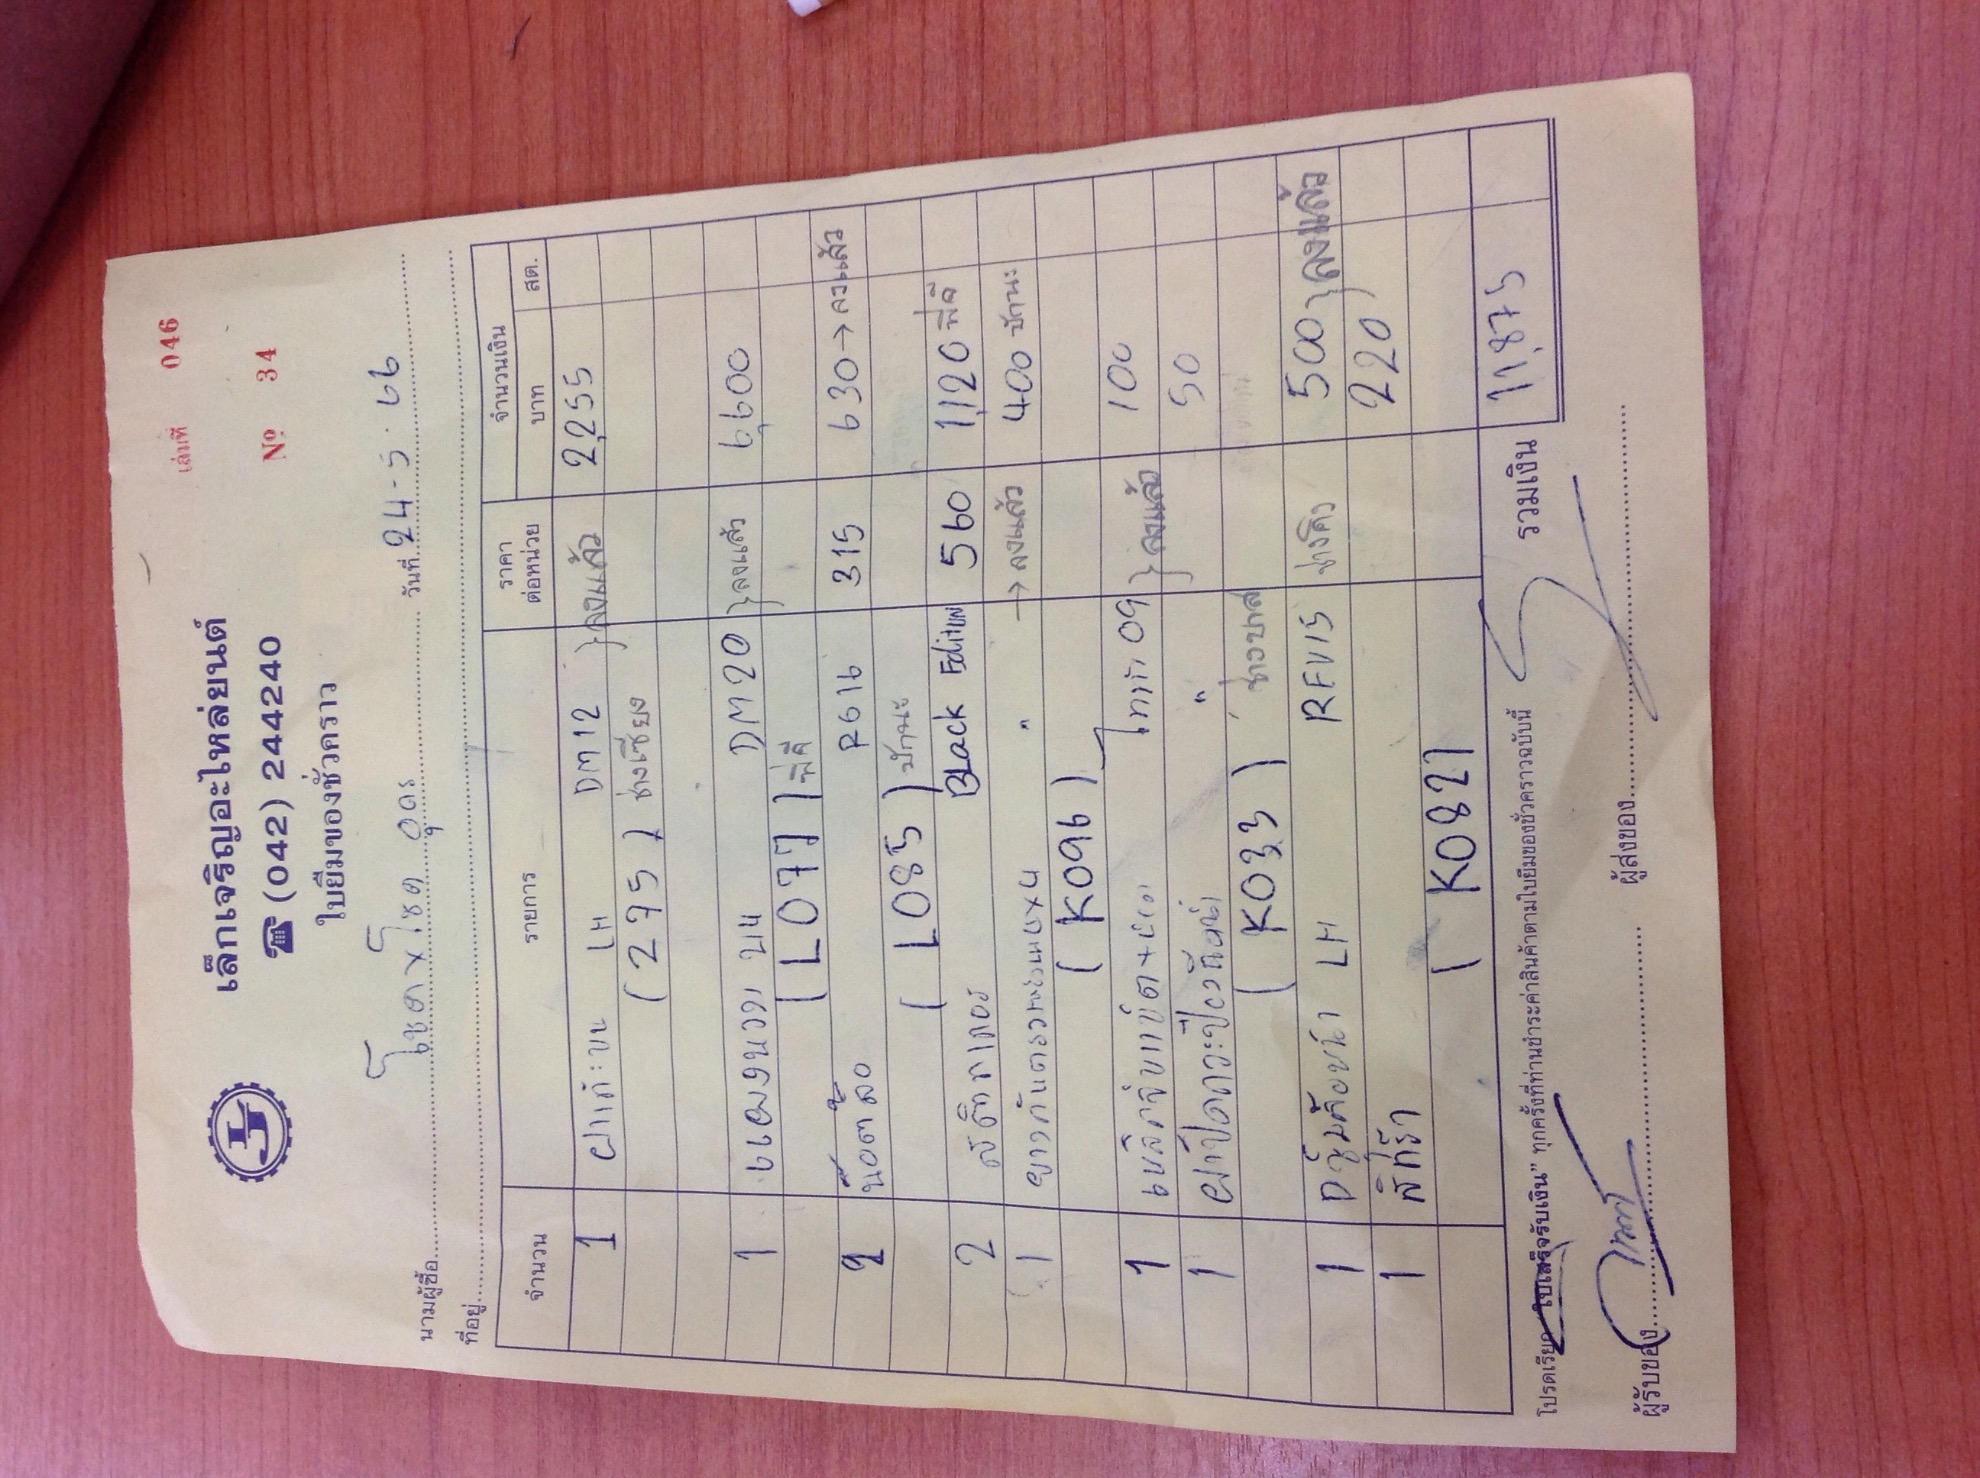 เล่มที่ 046
เล็กเจริญอะไหล่ยนต์
☎ (042) 244240
№ 34
ใบยืมของชั่วคราว
นามผู้ซื้อ โชคxโชค อุดร วันที่ 24-5-66
ที่อยู่
จำนวน รายการ ราคาต่อหน่วย จำนวนเงิน บาท สต.
1 ฝาแก้มบน LH DM12 } ลงแล้ว 2,255
(275) ช่างเซียง
1 แผงนวด บน DM20 } ลงแล้ว 6,600
(L077) พี่ดี
2 น๊อตล้อ RG16 315 630 → ลงแล้ว
(L085) ปักนะ
2 สติกเกอร์ Black Edition 560 1,120 พี่ดี
1 " → ลงแล้ว 400 ปักนะ
(K096)
1 ไททัน 09 } ลงแล้ว 100
1 " 50
(K033)
1 LH REV15 ช่างคิว 500 } ลงแล้ว
1 220
(K082)
รวมเงิน 11,875
โปรดเรียก "ใบเสร็จรับเงิน" ทุกครั้งที่ท่านชำระค่าสินค้าตามใบยืมของชั่วคราวฉบับนี้
ผู้รับของ ผู้ส่งของ